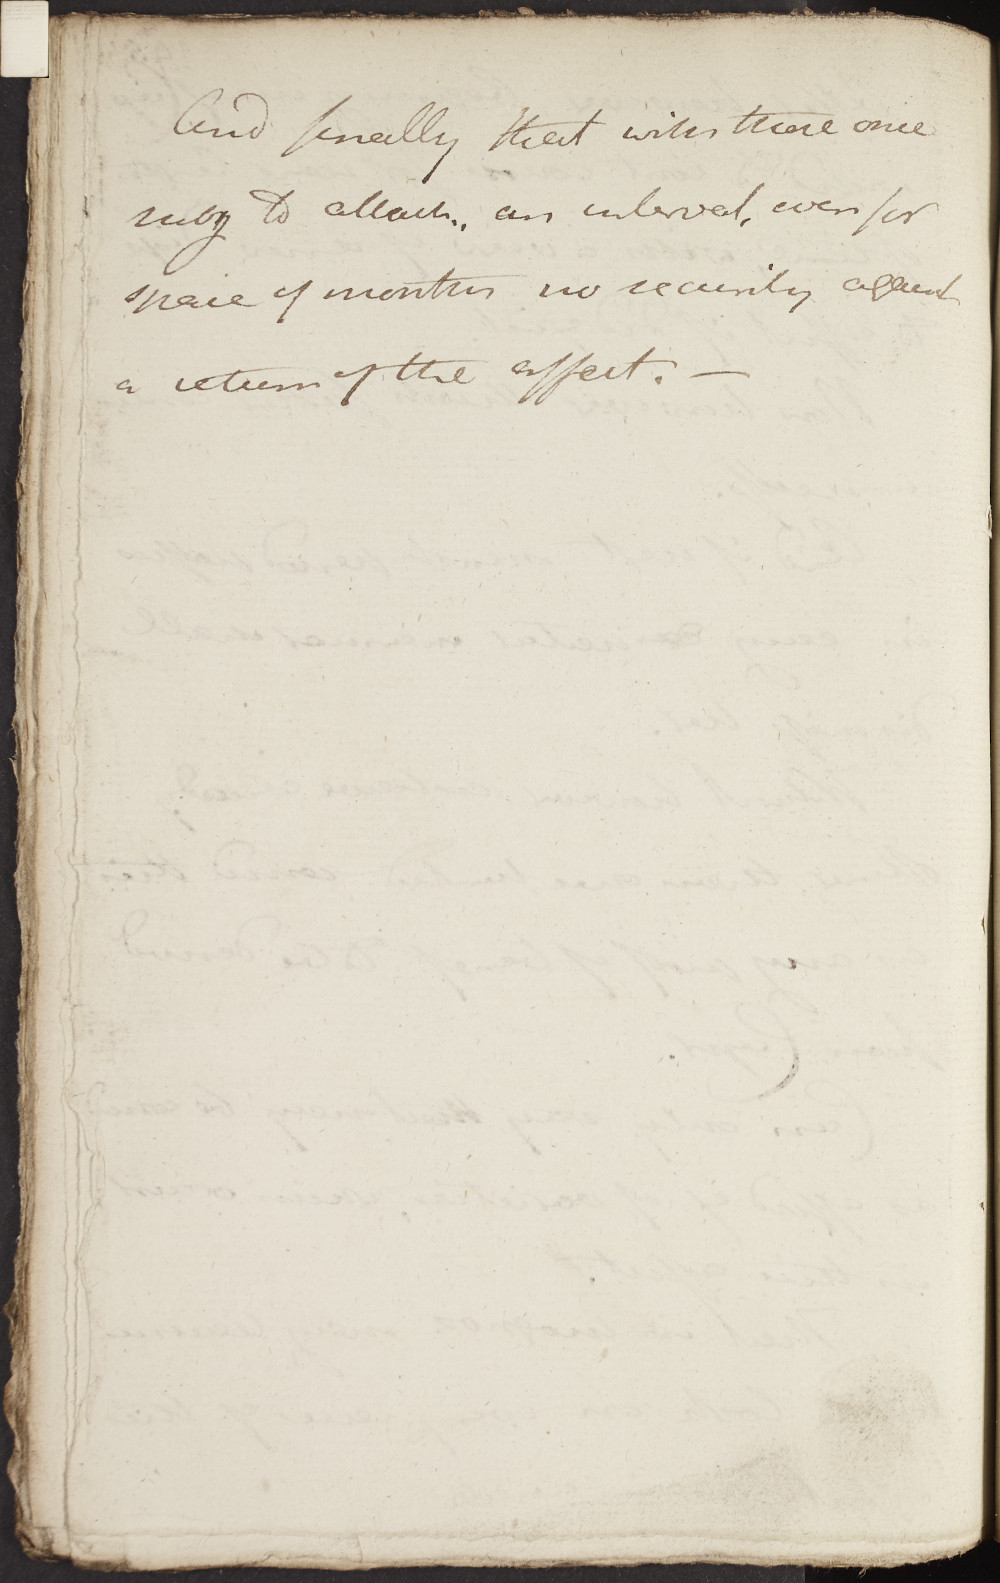 And finally that with those once
subj to attack, an interval, even for
space of months no security against
a return of the affect. —